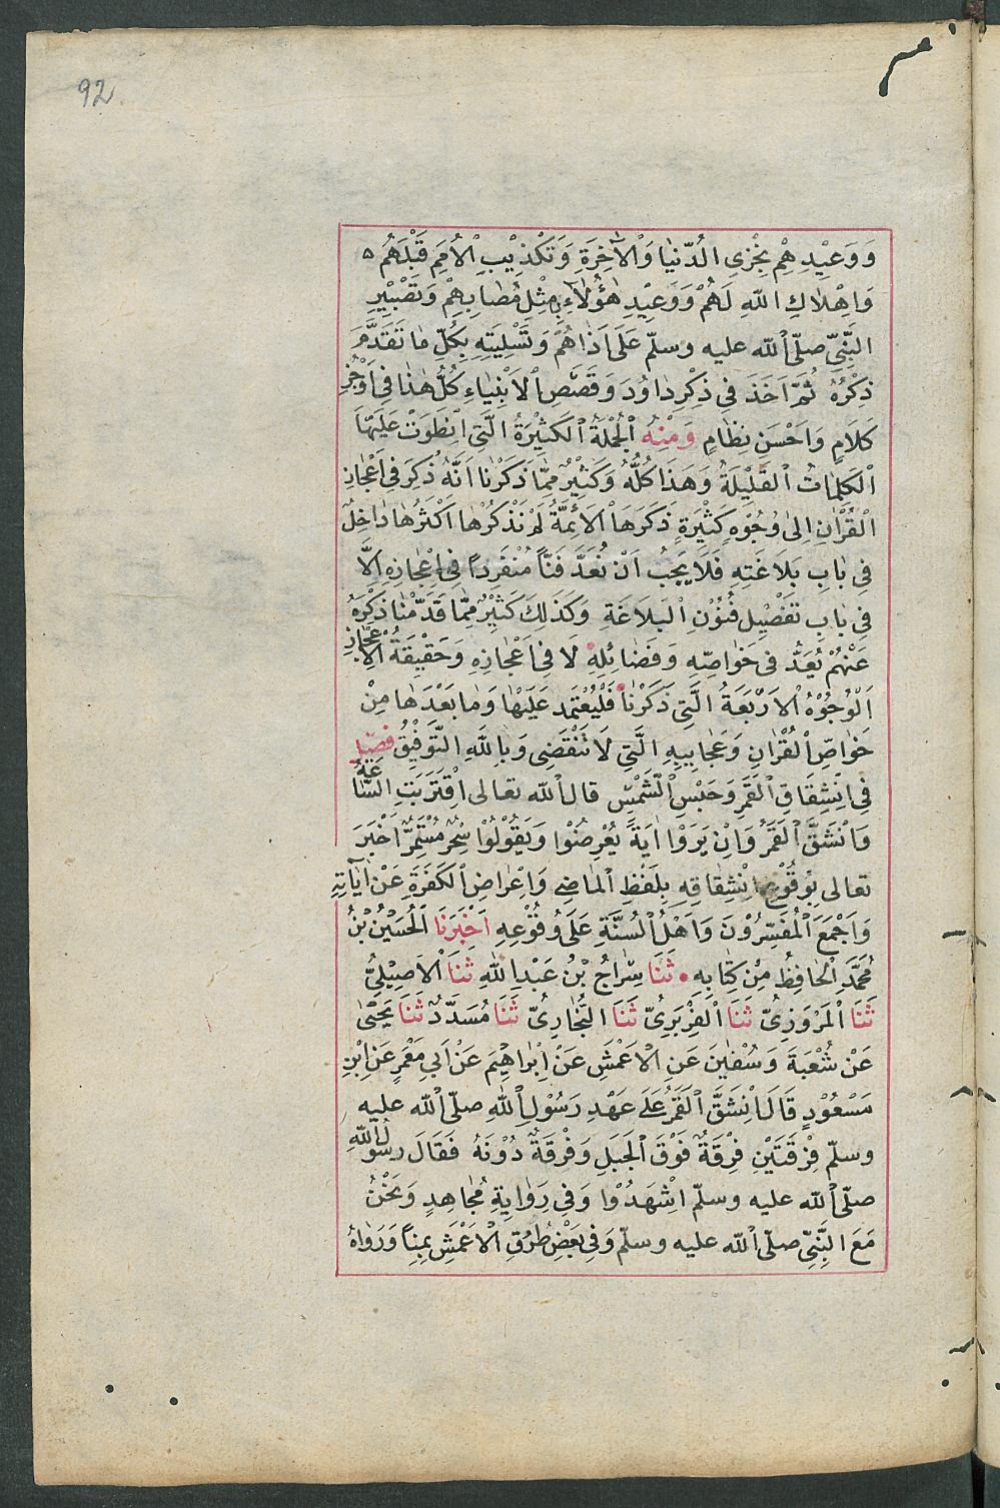 92
وَوَعِيْدِهِمْ بِخِزْىِ الدُّنْيٰا وَالْآخِرَةِ وَتَكْذِيْبِ الْاُمَمِ قَبْلَهُمْ
وَاِهْلٰاكِ اللّٰهِ لَهُمْ وَوَعِيْدِ هٰؤُلٰاءِ بِمِثْلِ مُصٰابِهِمْ وَتَصْبِيْرِ
النَّبِىِّ صلّى الله عليه وسلّم عَلَى اَذٰاهُمْ وَتَسْلِيَتِهِ بِكُلِّ مٰا تَقَدَّمَ
ذِكْرُهُ ثُمَّ اَخَذَ فِى ذِكْرِ دٰاوُدَ وَقَصَصِ الْاَنْبِيٰاءِ كُلُّ هٰذٰا فِى اَوْجَزِ
كَلَامٍ وَاَحْسَنِ نِظٰامٍ وَمِنْهُ الْجُمْلَةُ الْكَثِيْرَةُ الَّتِى انْطَوَتْ عَلَيْهَا
الْكَلِمٰاتُ الْقَلِيْلَةُ وَهَذَا كُلُّهُ وَكَثِيْرٌ مِمّٰا ذَكَرْنٰا اَنَّهُ ذُكِرَ فِى اعْجٰازِ
الْقُرْاٰنِ اِلىٰ وُجُوْهٍ كَثِيْرَةٍ ذَكَرَهَا الْاَئِمَّةُ لَمْ نَذْكُرْهٰا اَكْثَرُهٰا دٰاخِلٌ
فِى بٰابِ بَلَاغَتِهِ فَلَا يَجِبُ اَنْ نُعَدَّ فَنًّا مُنْفَرِدًا فِى اِعْجٰازِهِ اِلَّا
فِى بٰابِ تَفْصِيْلِ فُنُوْنِ الْبَلَاغَةِ وَكَذَلِكَ كَثِيْرٌ مِمّٰا قَدَّمْنٰا ذِكْرَهُ
عَنْهُمْ يُعَدُّ فِى خَوٰاصِّهِ وَفَضٰائِلِهِ لَا فِى اعْجٰازِهِ وَحَقِيْقَةُ الْاِعْجٰازِ
الْوُجُوْهُ الْاَرْبَعَةُ الَّتِى ذَكَرْنٰا فَلْيُعْتَمَد عَلَيْهٰا وَمٰا بَعْدَهٰا مِنْ
خَوٰاصِّ الْقُرْاٰنِ وَعَجٰايِبِهِ الَّتِى لَا تَنْقَضِى وَبِاللَّهِ التَّوْفِيْقُ فصل
فِى انْشِقَاقِ الْقَمَرِ وَحَبْسِ الشَّمْسِ قال الله تعالى اقْتَرَبَتِ السَّاعَةُ
وَانْشَقَّ الْقَمَرُ وَاِنْ يَرَوْا اٰيَةً يُعْرِضُوْا وَيَقُوْلُوْا سِحْرٌ مُسْتَمِرٌّ اَخْبَرَ
تعالى بِوُقُوْعِ انْشِقٰاقِهِ بِلَفْظِ الْمٰاضِى وَاِعْرٰاضِ الْكَفَرَةِ عَنْ اٰيٰاتِهِ
وَاَجْمَعَ الْمُفَسِّرُوْنَ وَاَهْلُ السُّنَّةِ عَلَى وُقُوْعِهِ اَخْبَرَنَا الْحُسَيْنُ بْنُ
مُحَمَّدٍ الْحٰافِظُ مِنْ كِتٰابِهِ ثَنَا سِرٰاجُ بْنُ عَبْدِ اللهِ ثَنَا الْاَصِيْلِىُّ
ثَنَا الْمَرْوَزِىُّ ثَنَا الْفِرْبَرِىُّ ثَنَا الْبُخٰارِىُّ ثَنَا مُسَدَّدٌ ثَنَا يَحْيىٰ
عَنْ شُعْبَةَ وَسُفْيٰنَ عَنِ الْاَعْمَشِ عَنْ اِبْرٰاهِيْمَ عَنْ اَبِى مَعْمَرٍ عَنِ ابْنِ
مَسْعُوْدٍ قَالَ انْشَقَّ الْقَمَرُ عَلَى عَهْدِ رَسُوْلِ اللهِ صلّى الله عليه
وسلّم فِرْقَتَيْنِ فِرْقَةٌ فَوْقَ الْجَبَلِ وَفِرْقَةٌ دُوْنَهُ فَقَالَ رسُولُ اللهِ
صلّى الله عليه وسلّم اشْهَدُوْا وَفِى رِوٰايَةِ مُجٰاهِدٍ وَنَحْنُ
مَعَ النَّبِىِّ صلّى الله عليه وسلّم وَفِى بَعْضِ طُرُقِ الْاَعْمَشِ بِمِنًا وَرَوٰاهُ